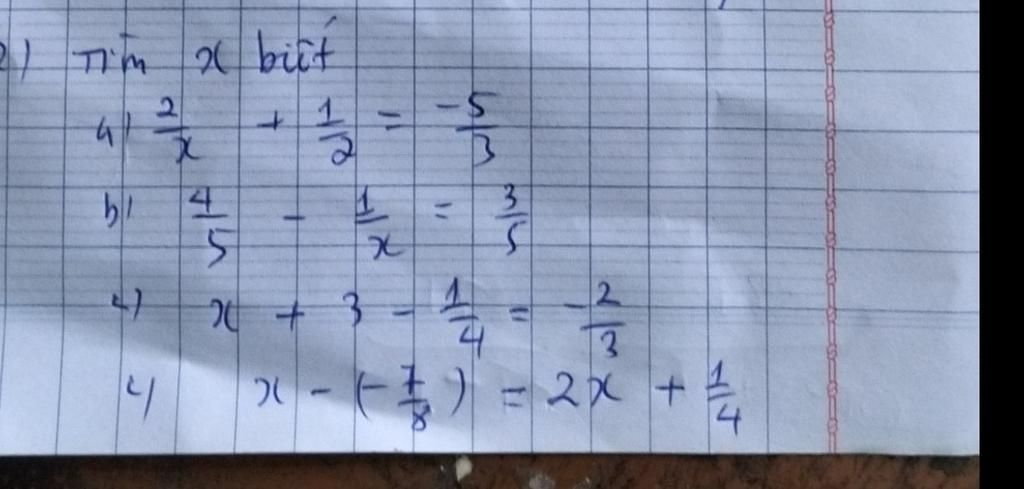 2) Tìm x biết
a) 2/x + 1/2 = -5/3
b) 4/5 - 1/x = 3/5
c) x + 3 - 1/4 = -2/3
c) x - (-7/8) = 2x + 1/4